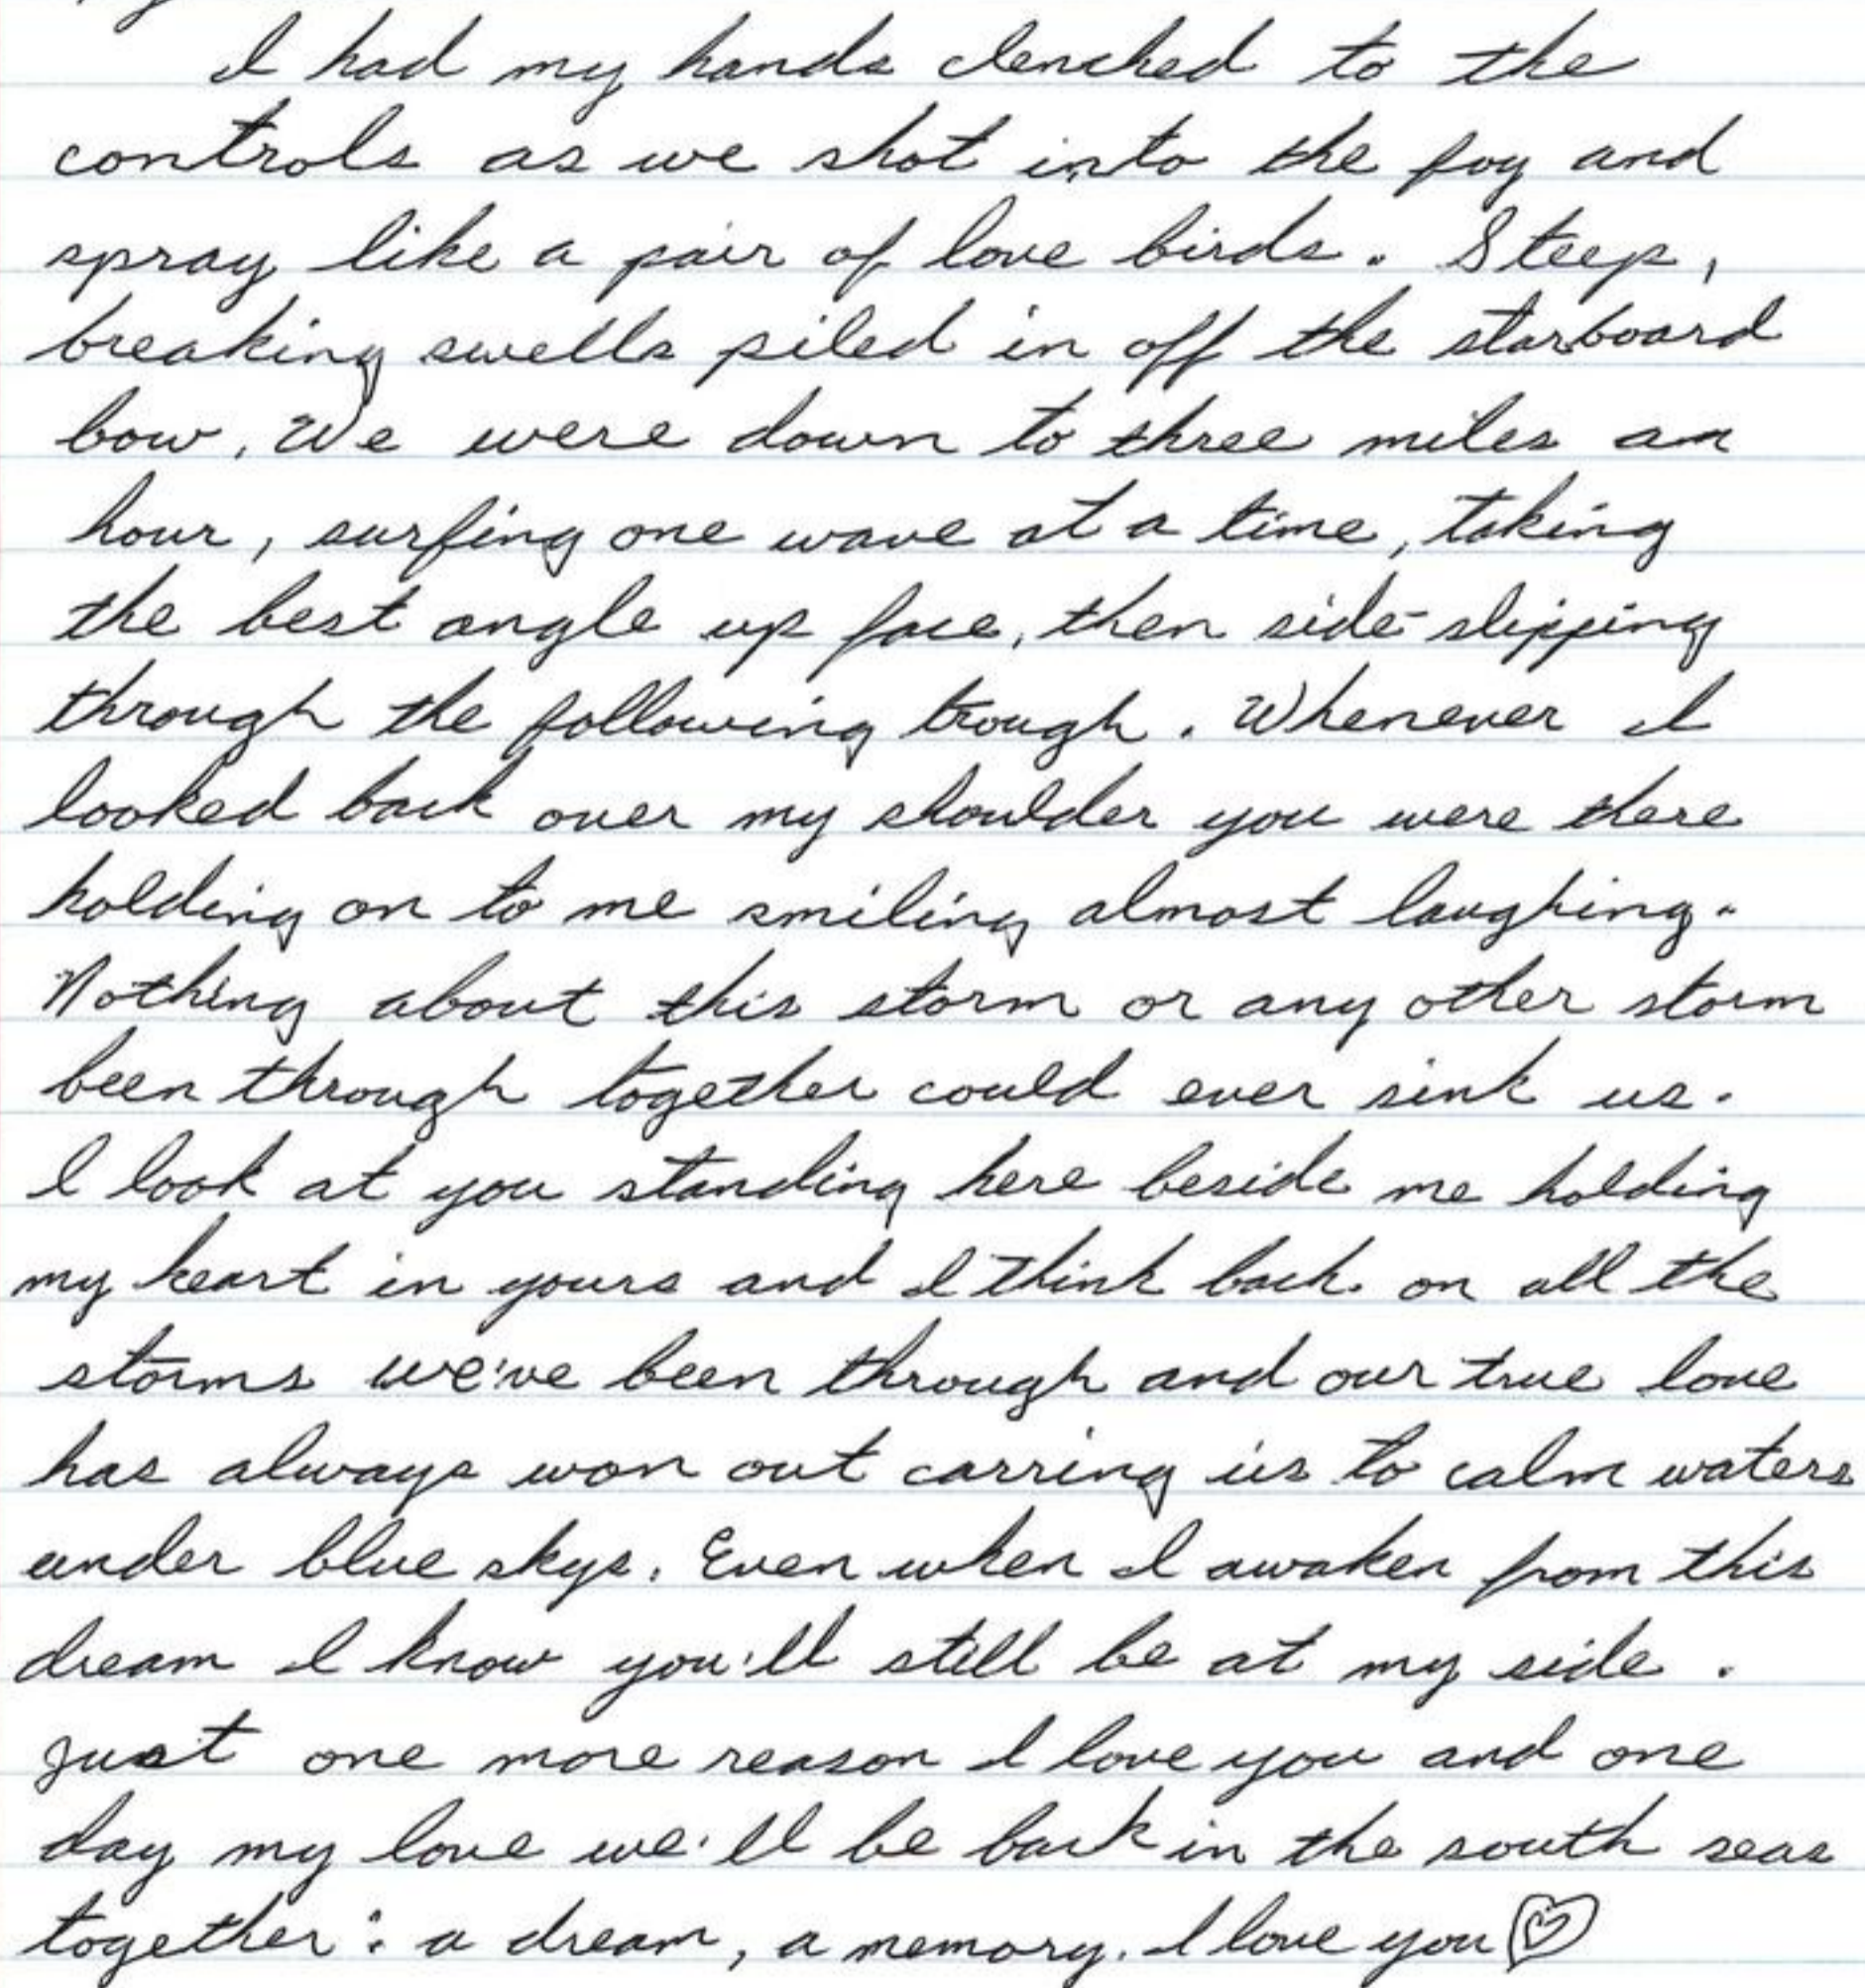 I had my hands clenched to the
controls as we shot into the fog and
spray like a pair of love birds. Steep,
breaking swells piled in off the starboard
bow. We were down to three miles an
hour, surfing one wave at a time, taking
the best angle up face, then side-slipping
through the following trough. Whenever I
looked back over my shoulder you were there
holding on to me smiling almost laughing.
Nothing about this storm or any other storm
been through together could ever sink us.
I look at you standing here beside me holding
my heart in yours and I think back on all the
storms we've been through and our true love
has always won out carring us to calm waters
under blue skys. Even when I awaken from this
dream I know you'll still be at my side.
Just one more reason I love you and one
day my love we'll be back in the south seas
together: a dream, a memory. I love you